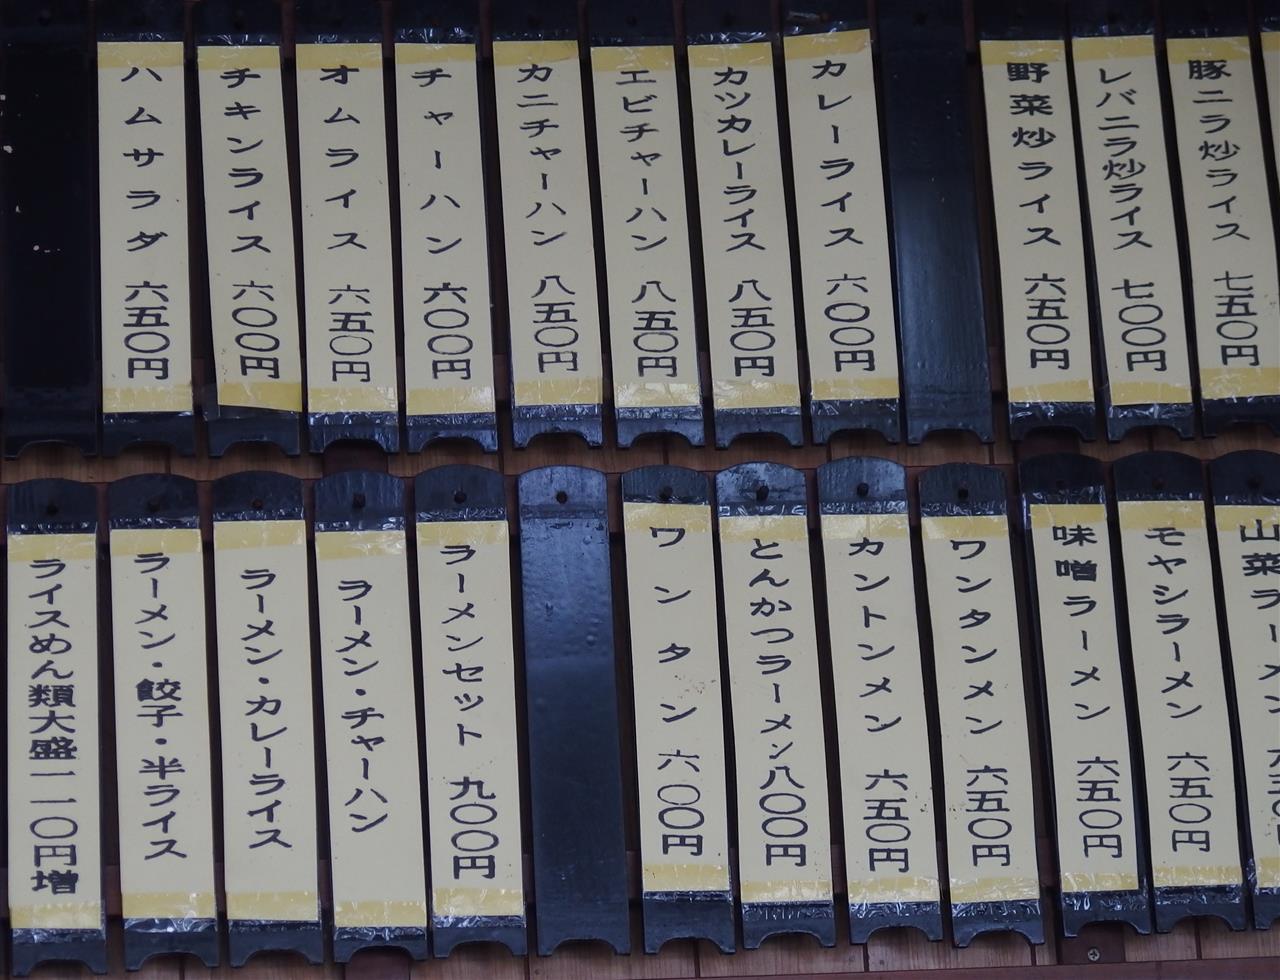 豚ニラ炒ライス 七五〇円
レバニラ炒ライス 七〇〇円
野菜炒ライス 六五〇円
カレーライス 六〇〇円
カツカレーライス 八五〇円
エビチャーハン 八五〇円
カニチャーハン 八五〇円
チャーハン 六〇〇円
オムライス 六五〇円
チキンライス 六〇〇円
ハムサラダ 六五〇円
山菜ラーメン
モヤシラーメン 六五〇円
味噌ラーメン 六五〇円
ワンタンメン 六五〇円
カントンメン 六五〇円
とんかつラーメン 八〇〇円
ワンタン 六〇〇円
ラーメンセット 九〇〇円
ラーメン・チャーハン
ラーメン・カレーライス
ラーメン・餃子・半ライス
ライスめん類大盛一一〇円増